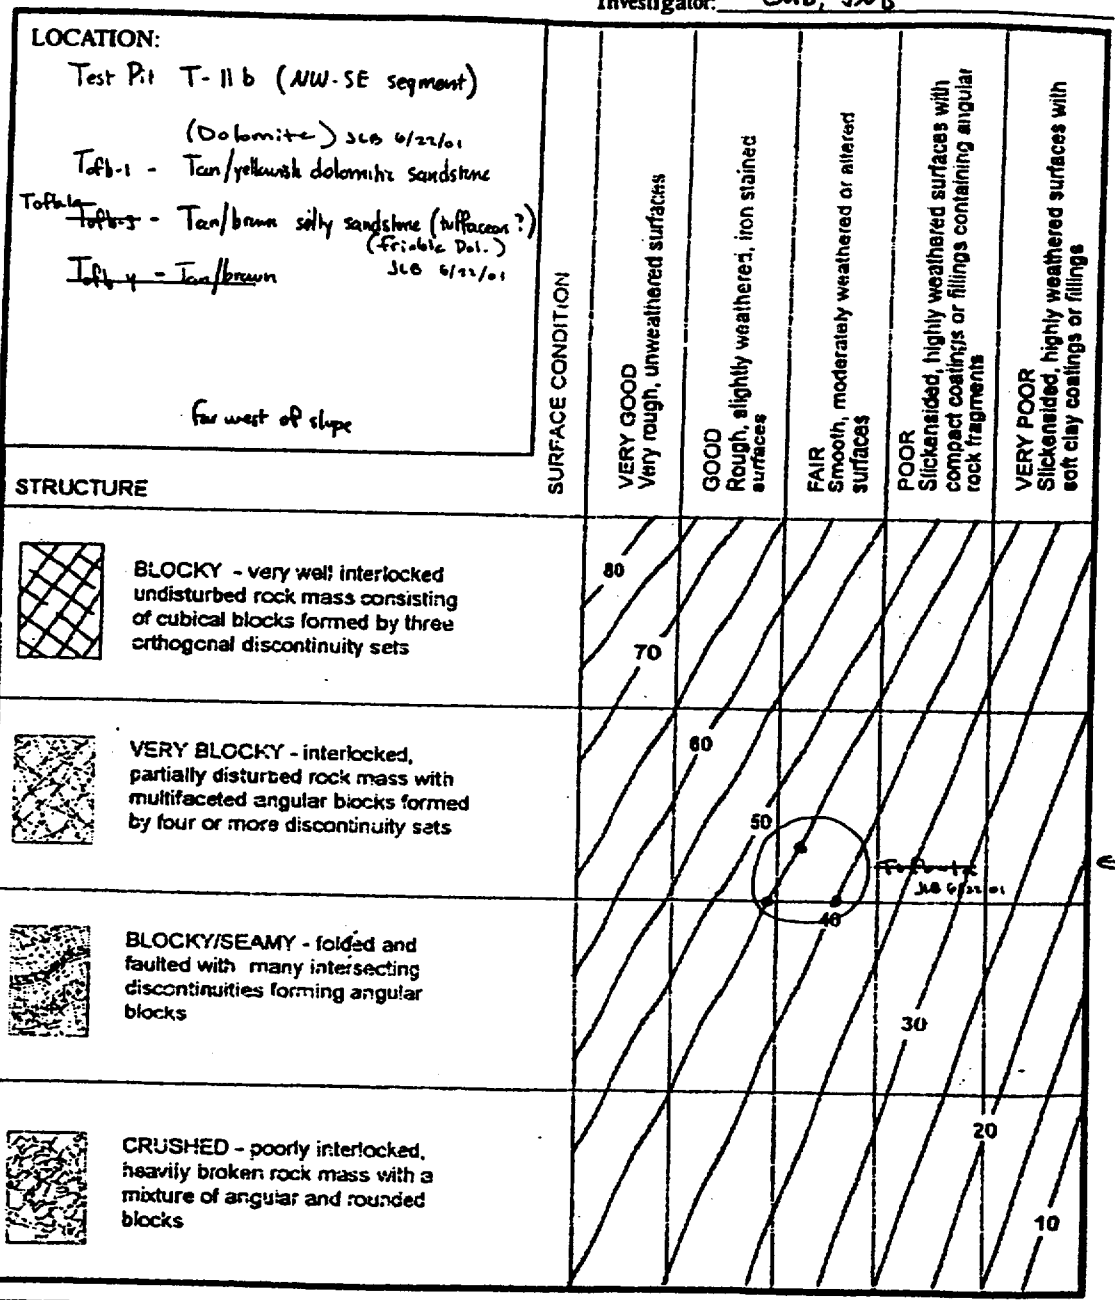 Investigator:
LOCATION:
Test Pit T-11b (NW-SE segment)
(Dolomite) JLB 6/22/01
Tofb-1 - Tan/yellowish dolomitic sandstone
Tofb-3 - Tan/brown silty sandstone (tuffaceous?)
(friable Dol.)
JLB 6/22/01
Tofb-4 - Tan/brown
far west of slope
STRUCTURE
SURFACE CONDITION
VERY GOOD
Very rough, unweathered surfaces
GOOD
Rough, slightly weathered, iron stained
surfaces
FAIR
Smooth, moderately weathered or altered
surfaces
POOR
Slickensided, highly weathered surfaces with
compact coatings or fillings containing angular
rock fragments
VERY POOR
Slickensided, highly weathered surfaces with
soft clay coatings or fillings
BLOCKY - very well interlocked
undisturbed rock mass consisting
of cubical blocks formed by three
orthogonal discontinuity sets
80
70
VERY BLOCKY - interlocked,
partially disturbed rock mass with
multifaceted angular blocks formed
by four or more discontinuity sets
60
50
JLB 6/22/01
40
BLOCKY/SEAMY - folded and
faulted with many intersecting
discontinuities forming angular
blocks
30
CRUSHED - poorly interlocked,
heavily broken rock mass with a
mixture of angular and rounded
blocks
20
10